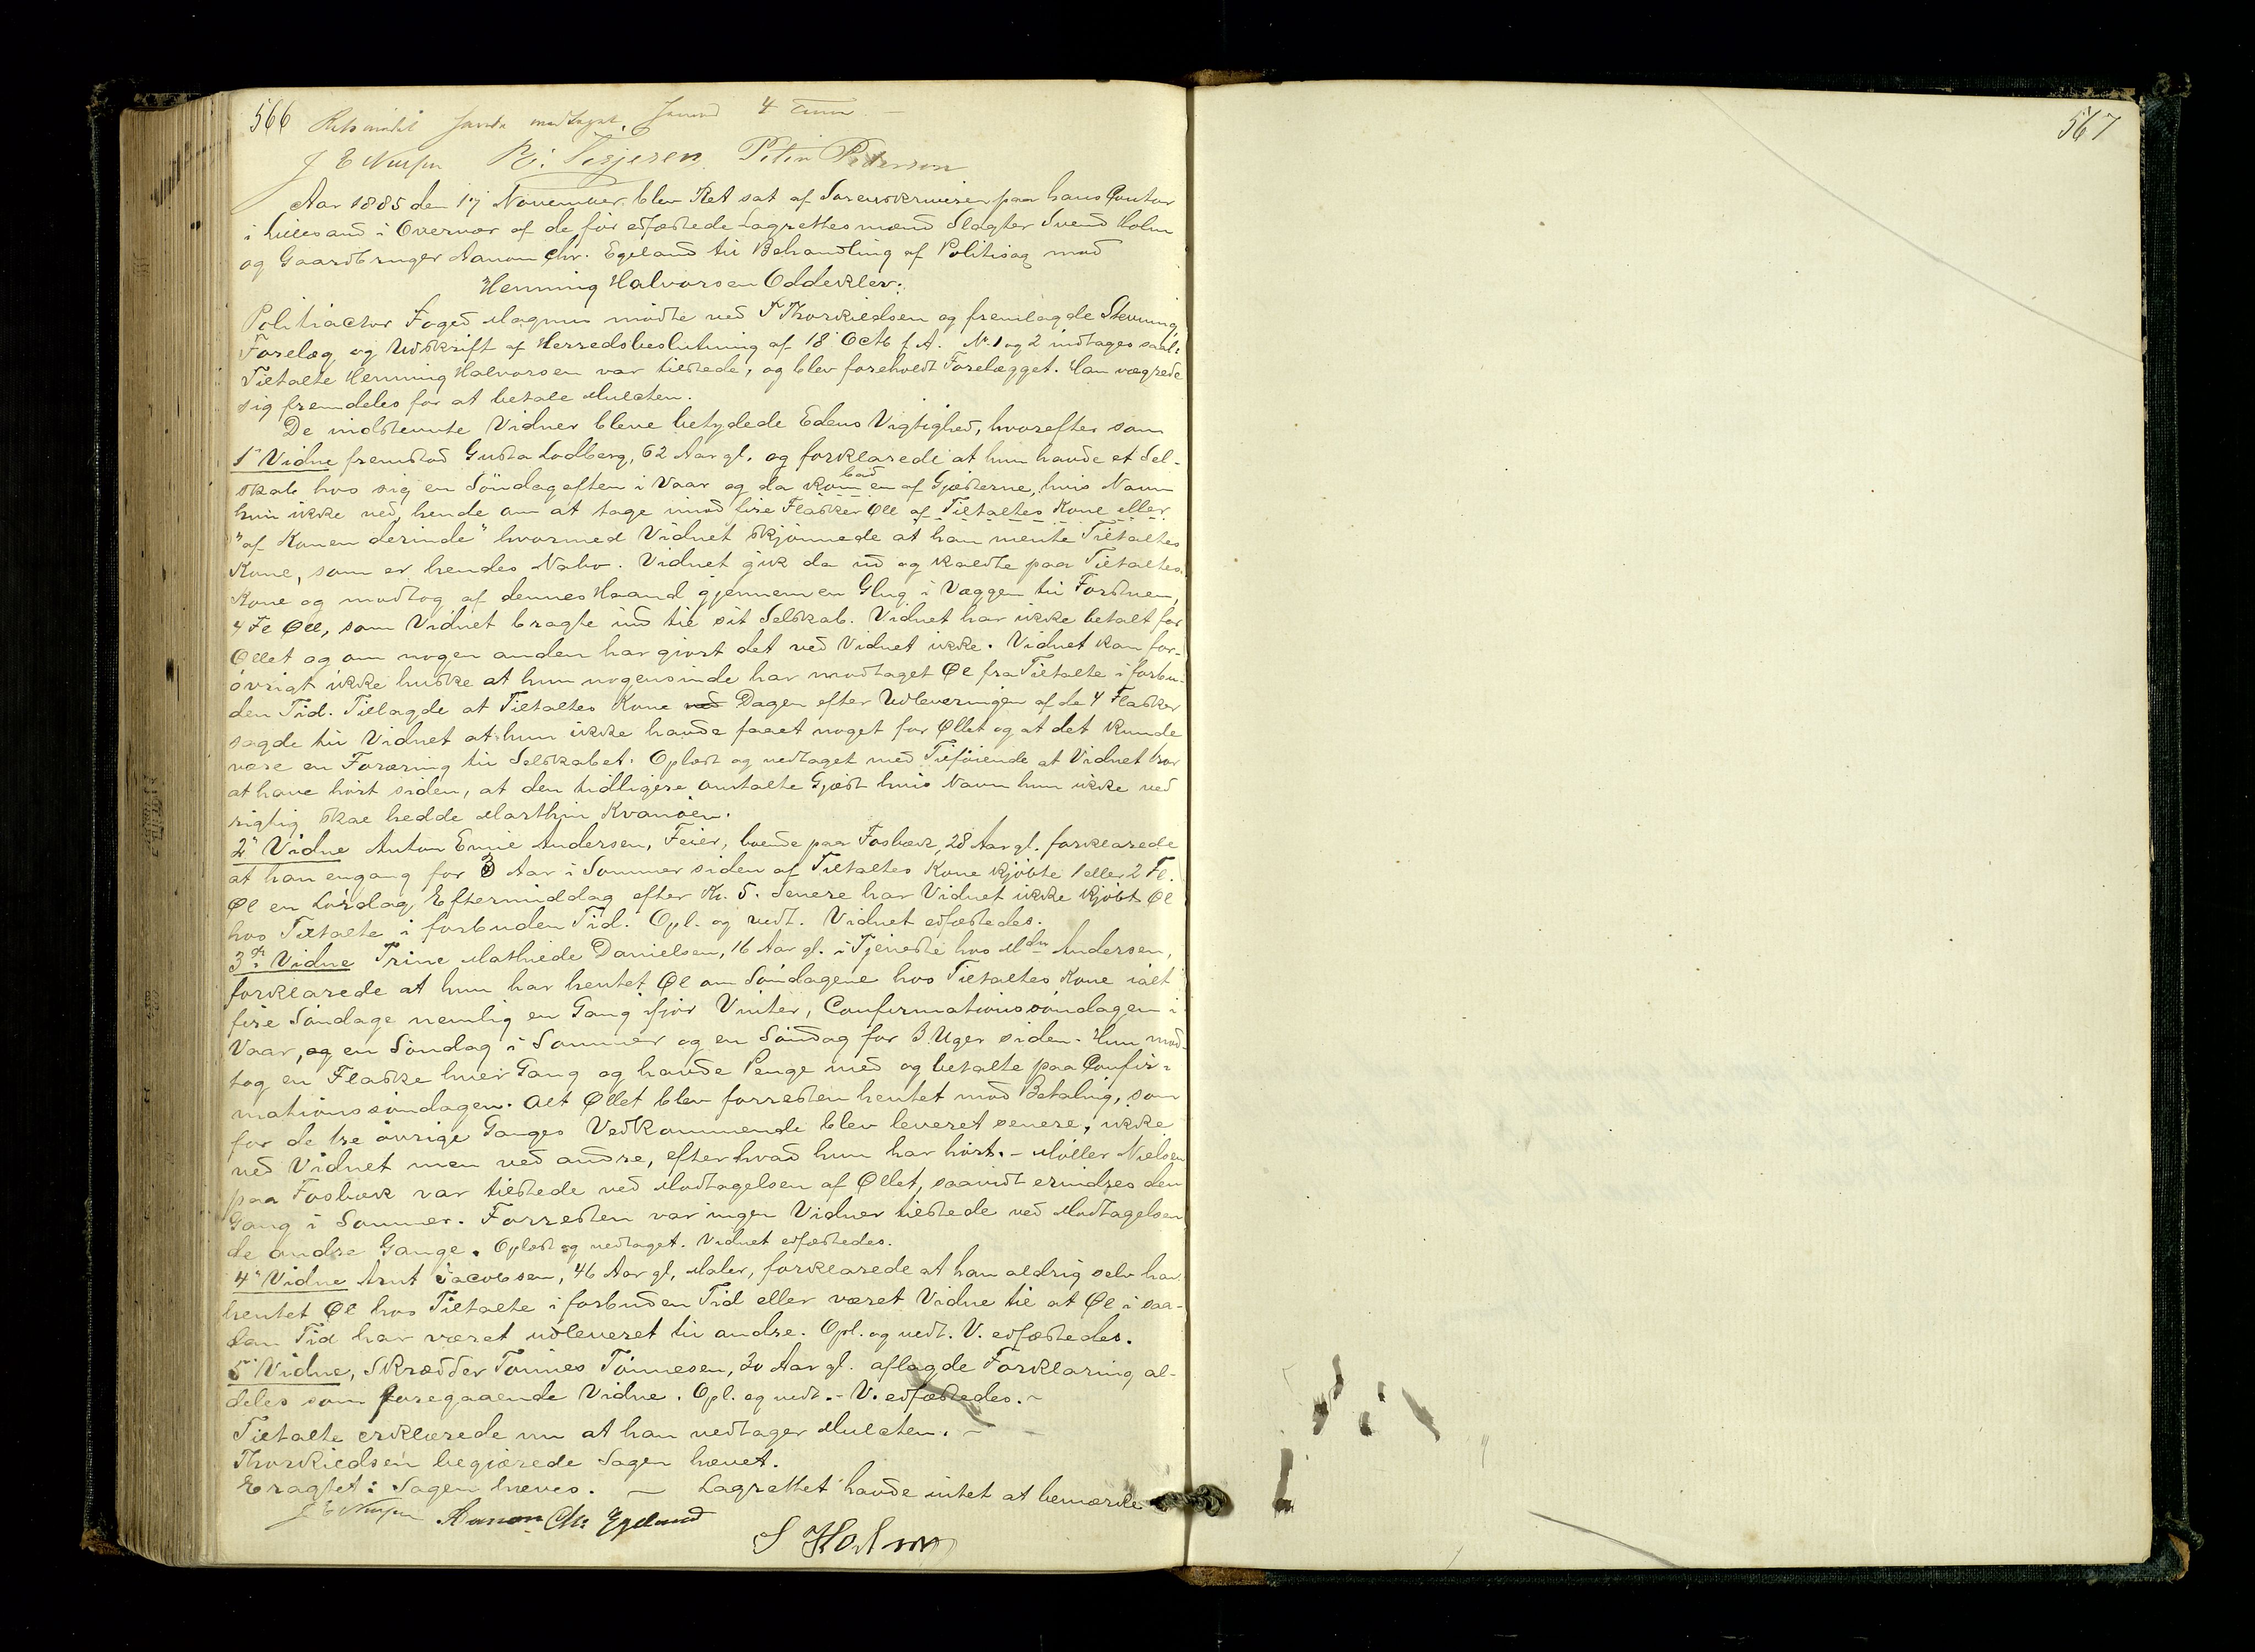 566
567
J E
Peder Pedersen
Aar 1885 den 17 November blev Ret sat af Sorenskriveren paa hans Contor
i Lillesand i Overvær af de før edfæstede Lagrettesmænd Slagter Svend Holm
og Gaardbruger Aanon Chr. Egeland til Behandling af Politisag mod
Henning Halvorsen Oddeklev.
Politiactor Foged Magnus mødte ved T Thorkildsen og fremlagde Stevning,
Forelæg og Udskrift af Herredsbeslutning af 18 Octb f. A. No 1 og 2 indtages saal:
Tiltalte Henning Halvorsen var tilstede, og blev foreholdt Forelægget. Han vægrede
sig fremdeles for at betale Mulcten.
De indstevnte Vidner bleve betydede Edens Vigtighed, hvorefter som
1' Vidne fremstod Gusta Lodberg, 62 Aar gl. og forklarede at hun havde et Sel-
skab hos sig en Søndagaften i Vaar og da kom bad en af Gjæsterne, hvis Navn
hun ikke ved, hende om at tage imod fire Flasker Øll af Tiltaltes Kone eller
"af Konen derinde" hvormed Vidnet skjønnede at han mente Tiltaltes
Kone, som er hendes Nabo. Vidnet gik da ud og kaldte paa Tiltaltes
Kone og modtog af dennes Haand gjennem en Glug i Væggen til Forstuen,
4 Fl Øll, som Vidnet bragte ind til sit Selskab. Vidnet har ikke betalt for
Øllet og om nogen anden har gjort det ved Vidnet ikke. Vidnet kan for-
øvrigt ikke huske at hun nogensinde har modtaget Øl fra Tiltalte i forbu-
den Tid. Tillagde at Tiltaltes Kone ved Dagen efter Udleveringen af de 4 Flasker
sagde til Vidnet at hun ikke havde faaet noget for Øllet og at det kunde
være en Foræring til Selskabet. Oplæst og vedtaget med Tilføiende at Vidnet tror
at have hørt siden, at den tidligere omtalte Gjæst hvis Navn hun ikke ved
rigtig skal hedde Marthin Kvanøen.
2' Vidne Anton Emil Andersen, Feier, boende paa Fosbæk, 28 Aar gl. forklarede
at han engang for 3 Aar i Sommer siden af Tiltaltes Kone kjøbte 1 eller 2 Fl.
Øl en Lørdag Eftermiddag efter Kl. 5. Senere har Vidnet ikke kjøbt Øl
hos Tiltalte i forbuden Tid. Opl. og vedt. Vidnet edfæstedes.
3die Vidne Trine Mathilde Danielsen, 16 Aar gl. i Tjeneste hos Mdm Andersen,
forklarede at hun har hentet Øl om Søndagene hos Tiltaltes Kone ialt
fire Søndage nemlig en Gang ifjor Vinter, Confirmationssøndagen i
Vaar, og en Søndag i Sommer og en Søndag for 3 Uger siden. Hun mod-
tog en Flaske hver Gang og havde Penge med og betalte paa Confir-
mationssøndagen. Alt Øllet blev forresten hentet mod Betaling, som
for de tre øvrige Ganges Vedkommende blev leveret senere, ikke
ved Vidnet men ved andre, efter hvad hun har hørt. - Møller Nielsen
paa Fosbæk var tilstede ved Modtagelsen af Øllet, saavidt erindres den
Gang i Sommer. Forresten var ingen Vidner tilstede ved Modtagelsen
de andre Gange. Oplæst og vedtaget. Vidnet edfæstedes.
4' Vidne Arnt Jacobsen, 46 Aar gl, Maler, forklarede at han aldrig selv har
hentet Øl hos Tiltalte i forbuden Tid eller været Vidne til at Øl i saa-
dan Tid har været udleveret til andre. Opl. og vedt. V. edfæstedes.
5' Vidne, Skrædder Tønnes Tønnesen, 30 Aar gl. aflagde Forklaring al-
deles som foregaaende Vidne. Opl. og vedt. - V. edfæstedes. -
Tiltalte erklærede nu at han vedtager Mulcten. -
Thorkildsen begjærede Sagen hævet.
Eragtet: Sagen hæves. - Lagrettet havde intet at bemærke
J E Aanon Chr Egeland
S Holm